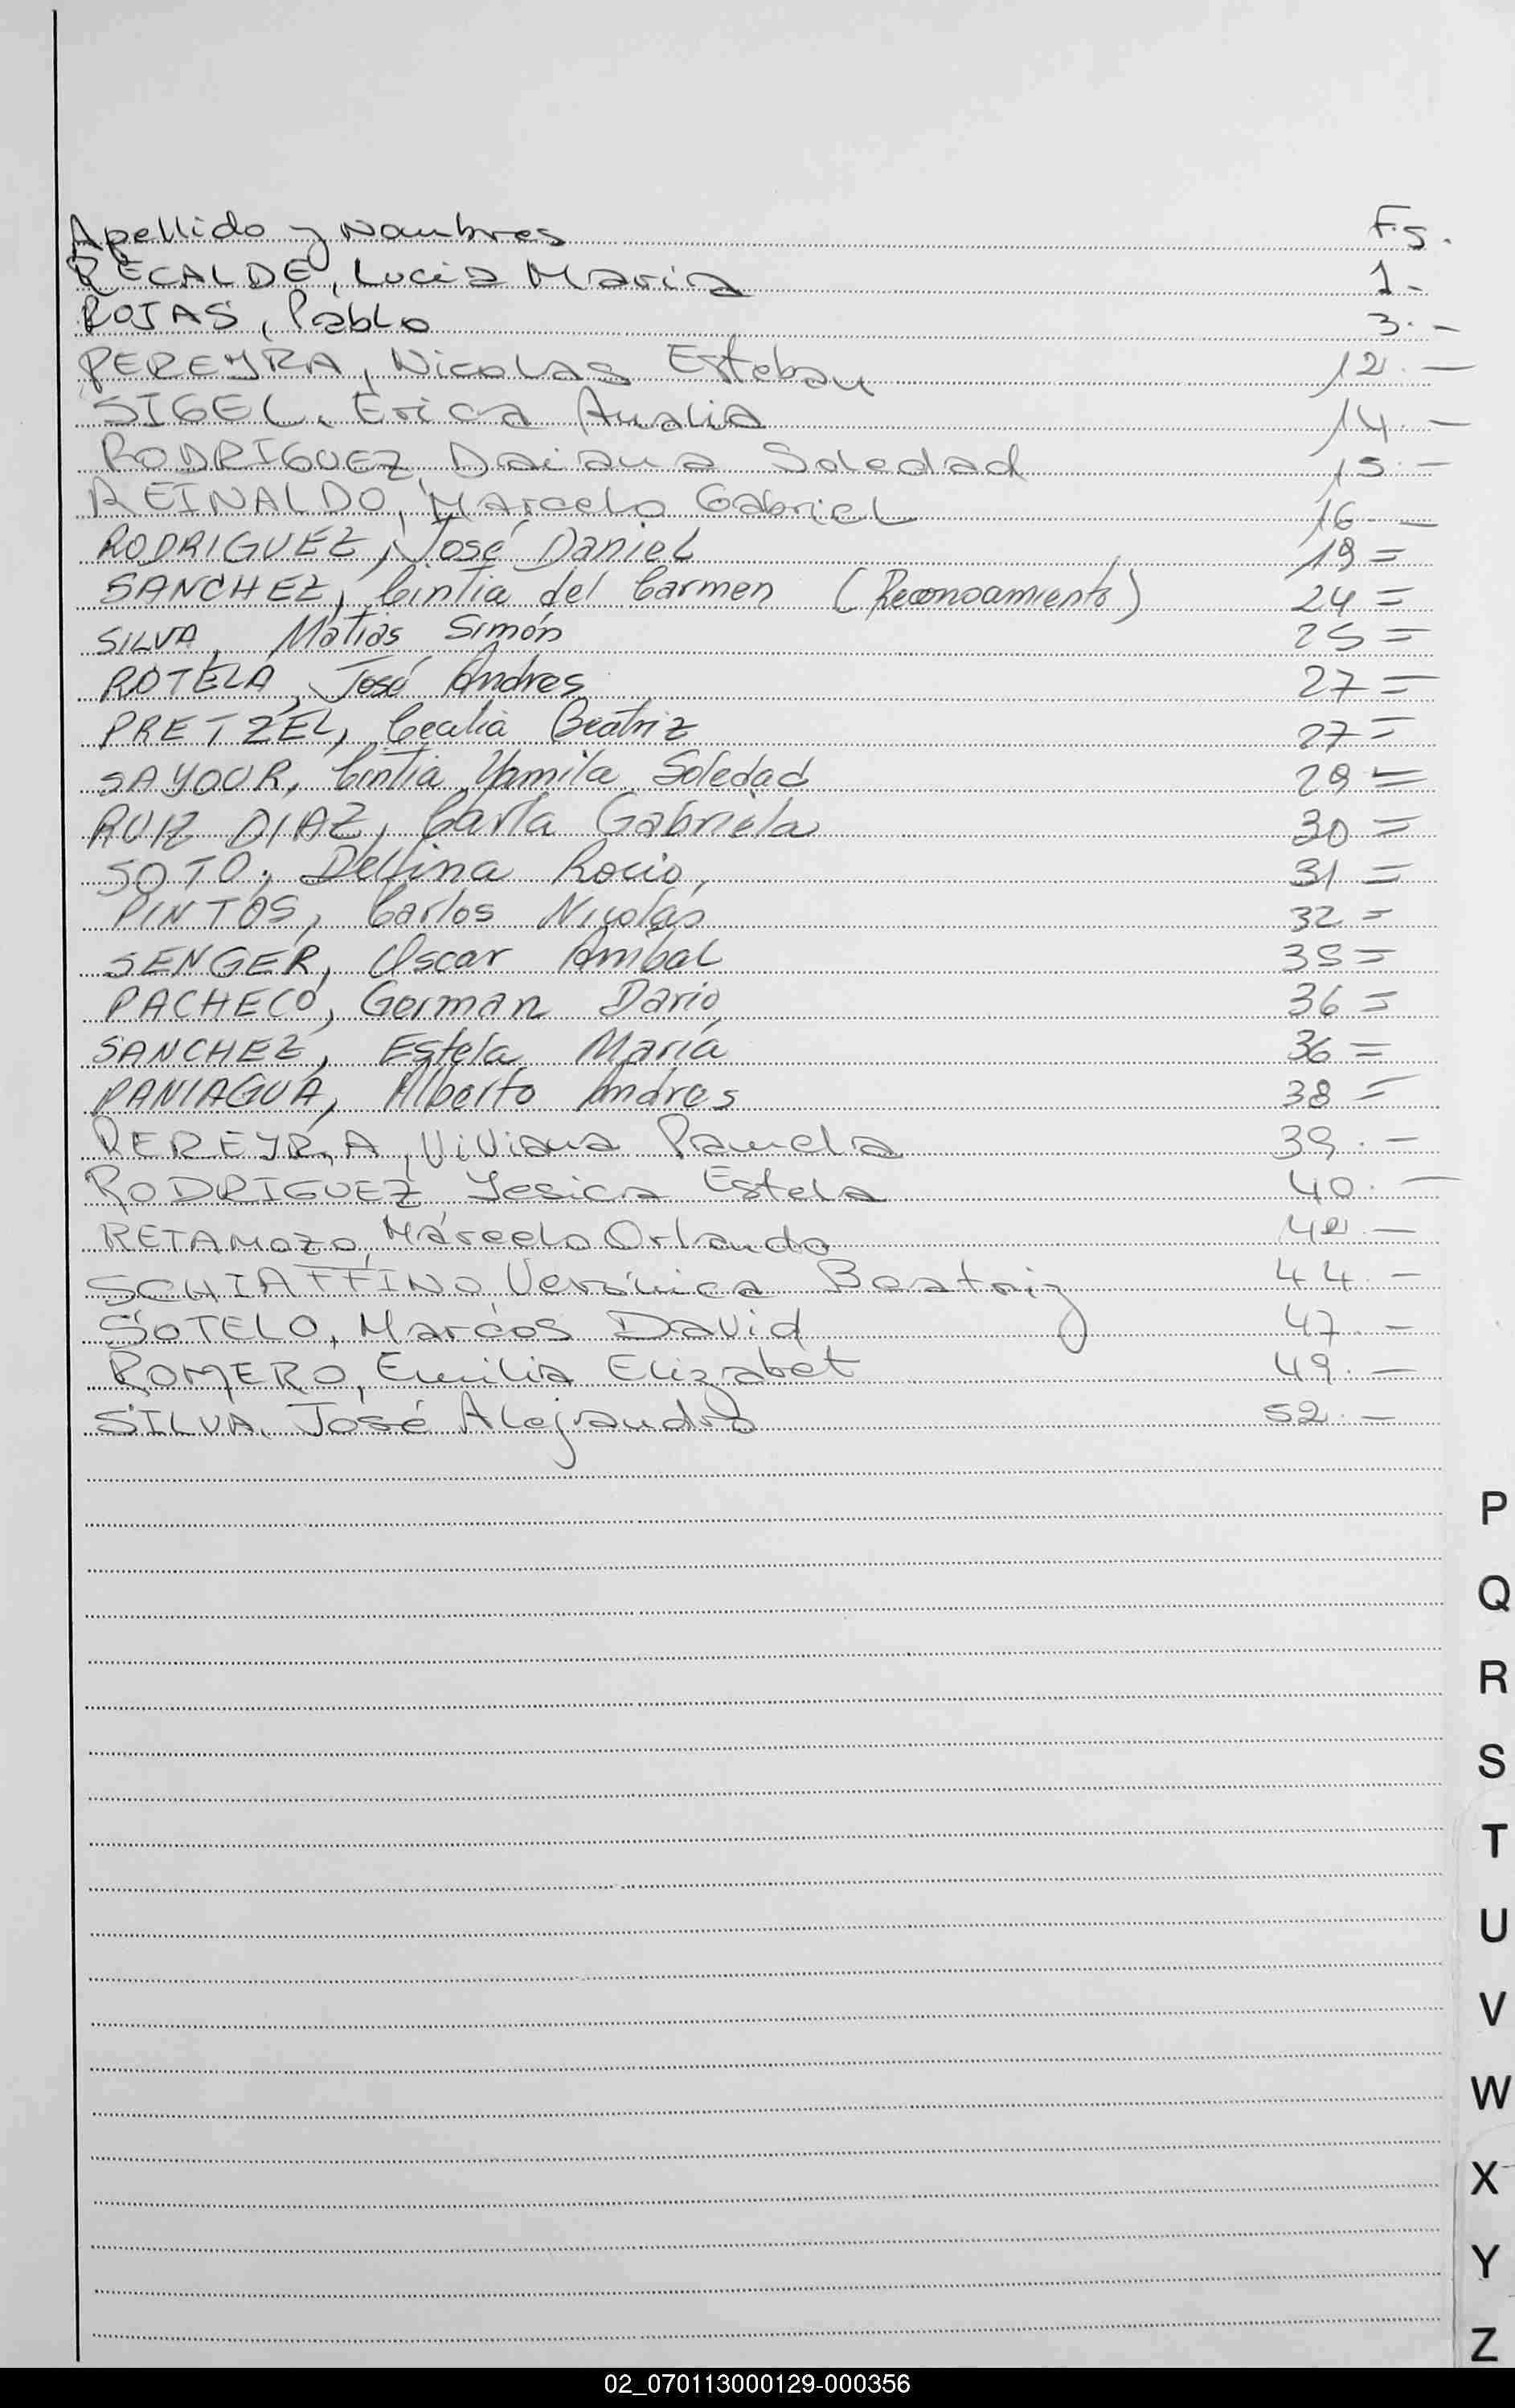 Apellido y Nombres Fs.
RECALDE, Lucia María 1.-
ROJAS, Pablo 3.-
PEREYRA, Nicolas Esteban 12.-
SIGEL, Erica Analia 14.-
RODRIGUEZ, Daiana Soledad 15.-
REINALDO, Marcelo Gabriel 16.-
RODRIGUEZ, José Daniel 19=
SANCHEZ, Cintia del Carmen (Reconocamiento) 24=
SILVA, Matias Simón 25=
ROTELA, José Andres 27=
PRETZEL, Cecilia Beatriz 27=
SAYOUR, Cintia Yamila Soledad 29=
RUIZ DIAZ, Carla Gabriela 30=
SOTO, Delfina Rocio, 31=
PINTOS, Carlos Nicolás 32=
SENGER, Oscar Anibal 35=
PACHECO, German Dario 36=
SANCHEZ, Estela María 36=
PANIAGUA, Alberto Andres 38=
PEREYRA, Viviana Pamela 39.-
RODRIGUEZ Yesica Estela 40.-
RETAMOZO, Marcelo Orlando .-
SCHIAFFINO, Verónica Beatriz 44.-
SOTELO, Marcos David 47.-
ROMERO, Emilia Elizabet 49.-
SILVA, José Alejandro 52.-
P
Q
R
S
T
U
V
W
X
Y
Z
02_070113000129-000356